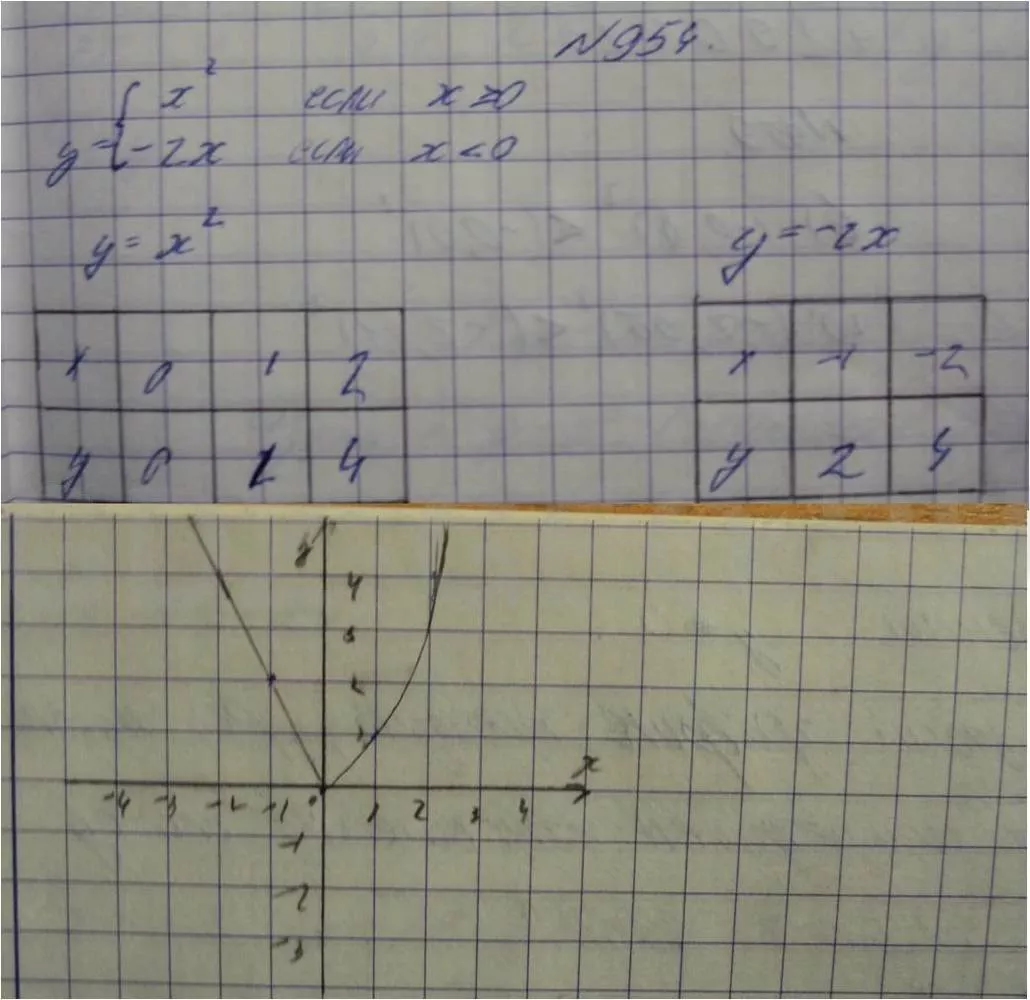 N954.
x² если x ≥ 0
y = { -2x если x < 0
y = x²
y = -2x
x 0 1 2
y 0 1 4
x -1 -2
y 2 4
y
4
3
2
1
x
-4 -3 -2 -1 0 1 2 3 4
-1
-2
-3